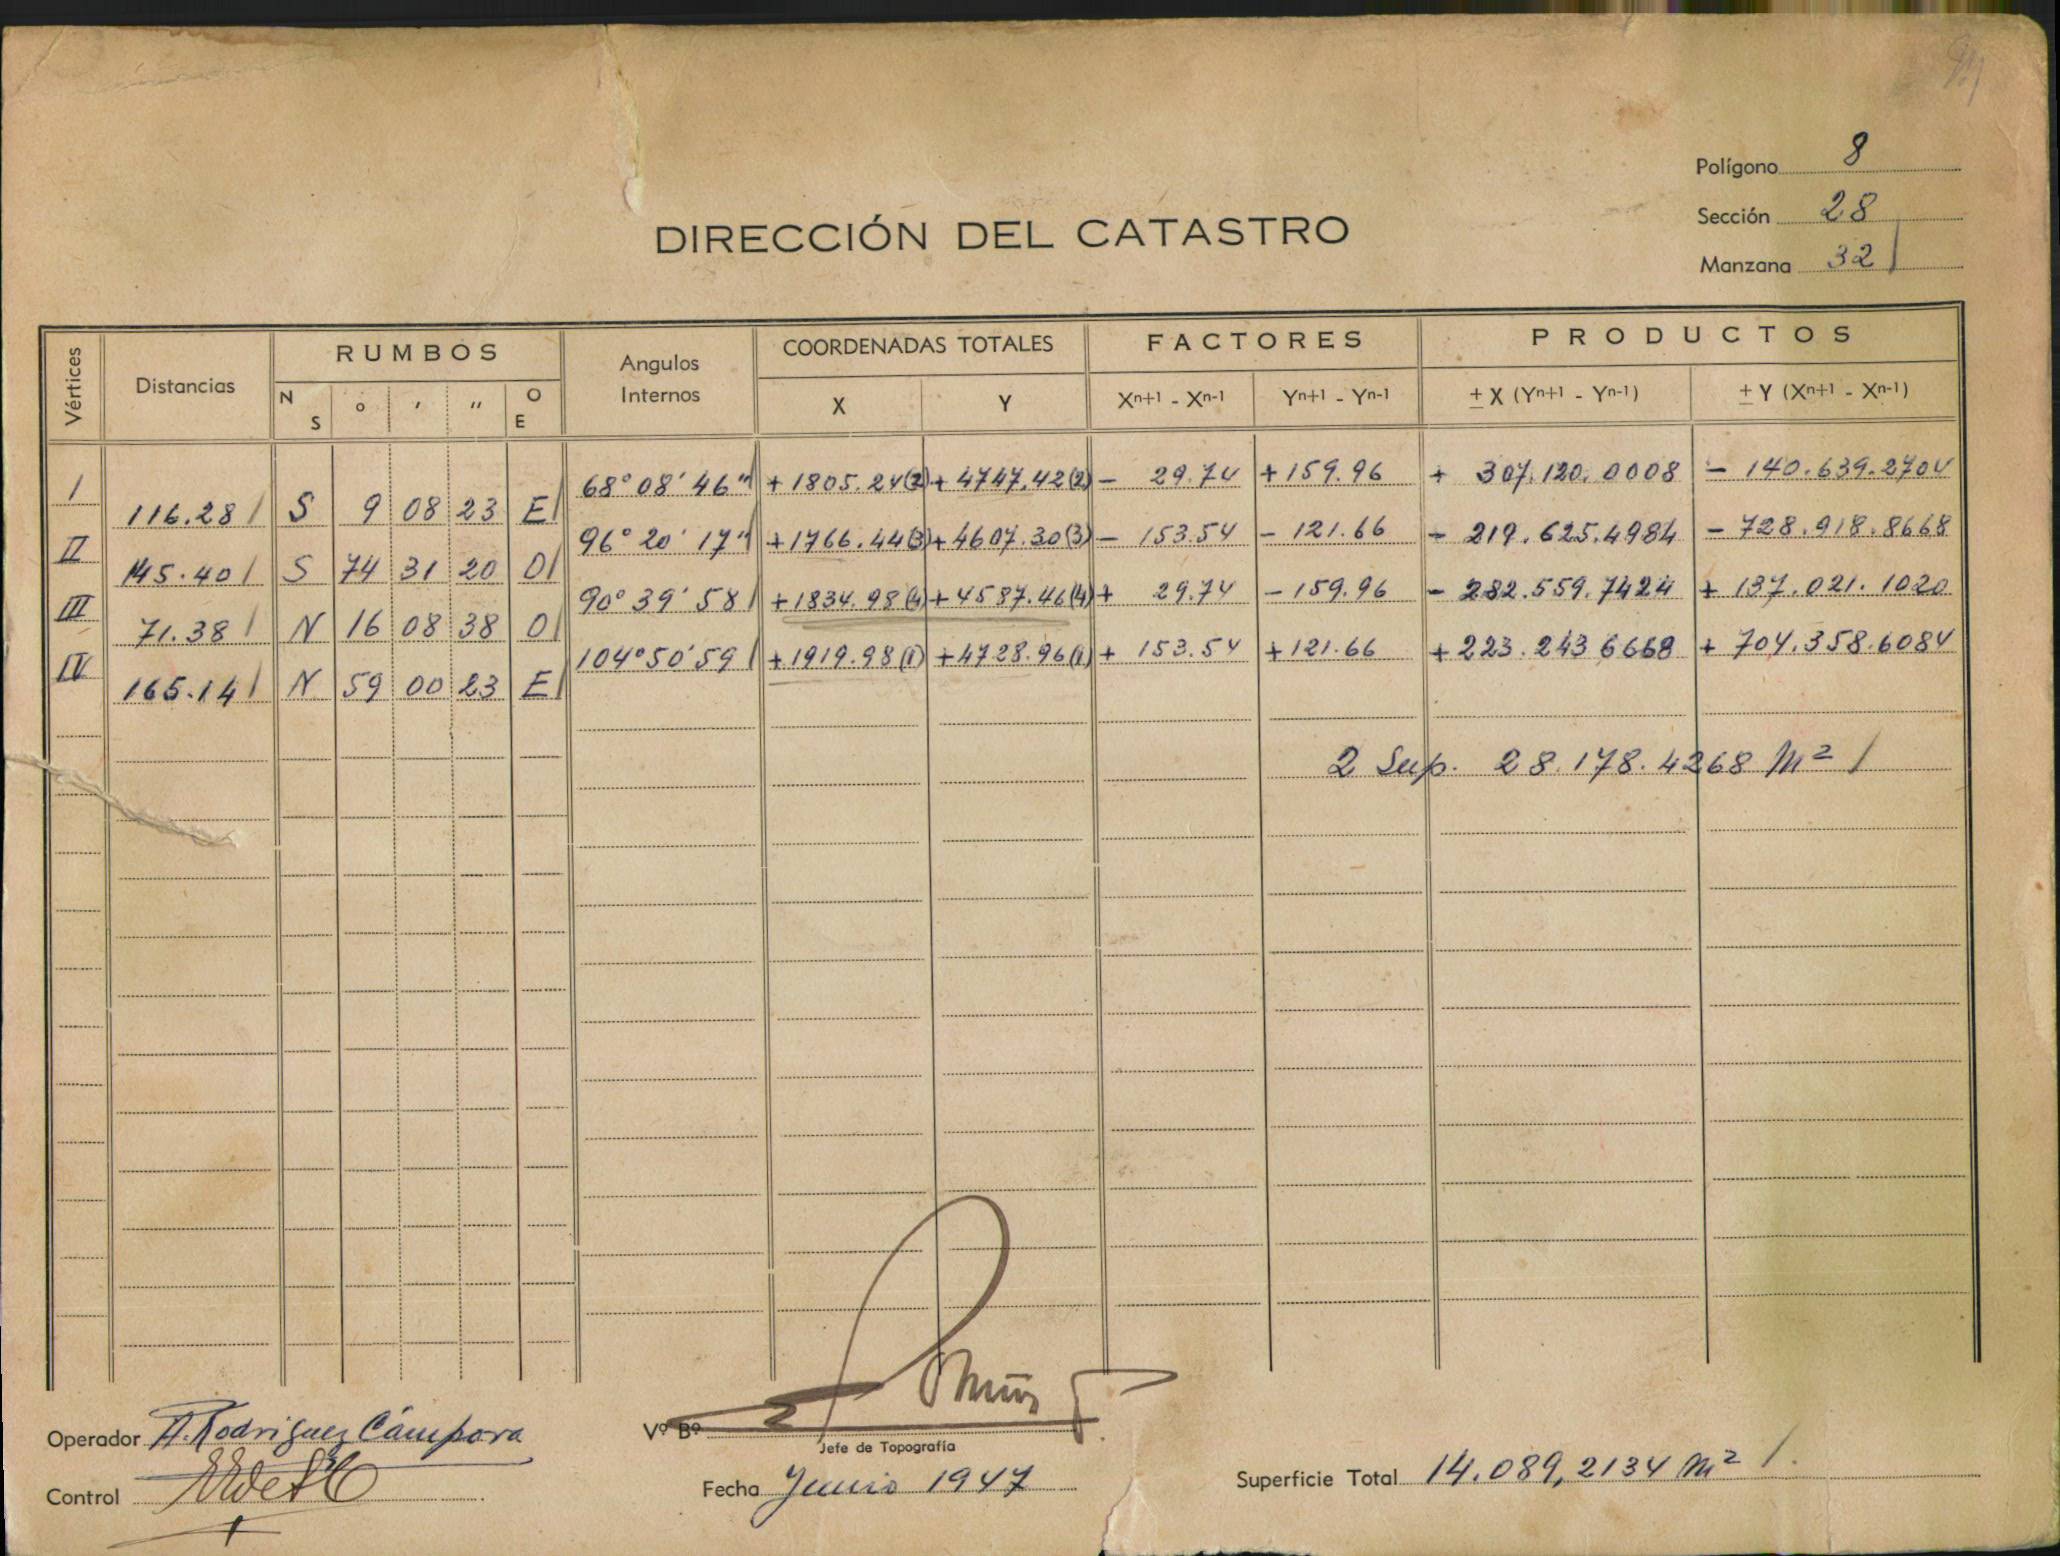 Polígono 8
Sección 28
Manzana 32
DIRECCIÓN DEL CATASTRO
Vértices Distancias RUMBOS Angulos Internos COORDENADAS TOTALES FACTORES PRODUCTOS
N S ° ′ ″ O E X Y Xⁿ⁺¹ - Xⁿ⁻¹ Yⁿ⁺¹ - Yⁿ⁻¹ ± X (Yⁿ⁺¹ - Yⁿ⁻¹) ± Y (Xⁿ⁺¹ - Xⁿ⁻¹)
I 68° 08' 46" +1805.24(2) +4747.42(2) - 29.74 +159.96 + 307.120.0008 - 140.639.2704
116.28 S 9 08 23 E
II 96° 20' 17" +1766.44(3) +4607.30(3) - 153.54 - 121.66 - 219.625.4984 - 728.918.8668
145.40 S 74 31 20 O
III 90° 39' 58 +1834.98(4) +4587.46(4) + 29.74 - 159.96 - 282.559.7424 + 137.021.1020
71.38 N 16 08 38 O
IV 104° 50' 59 +1919.98(1) +4728.96(1) + 153.54 +121.66 +223.243 6668 + 704.358.6084
165.14 N 59 00 23 E
2 Sup. 28.178.4268 M²
Operador A. Rodriguez Cámpora
Control
Vº Bº
Jefe de Topografía
Fecha Junio 1947
Superficie Total 14.089,2134 m²